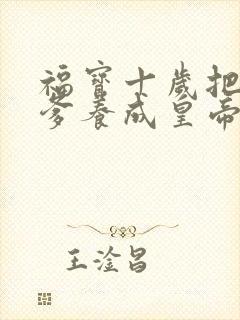 福寶十歲把
爹養成皇帝
王淦昌